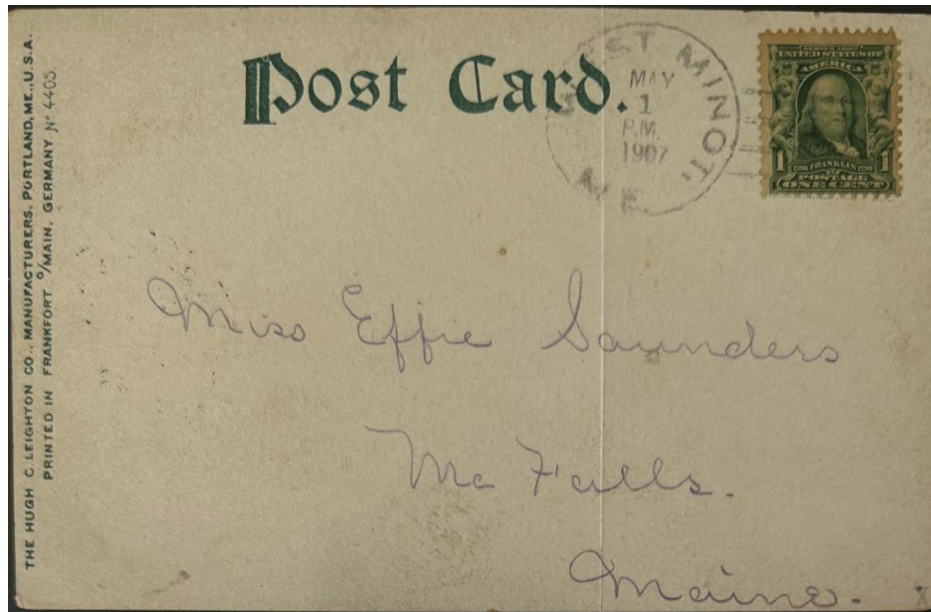 THE HUGH C. LEIGHTON CO., MANUFACTURERS, PORTLAND, ME., U.S.A.
PRINTED IN FRANKFORT O/MAIN, GERMANY No 4405
Post Card.
WEST MINOT,
ME
MAY
1
P.M.
1907
SERIES 1902
UNITED STATES OF
AMERICA
1706 FRANKLIN 1790
1 POSTAGE 1
ONE CENT
Miss Effie Saunders
Mc Falls.
Maine.